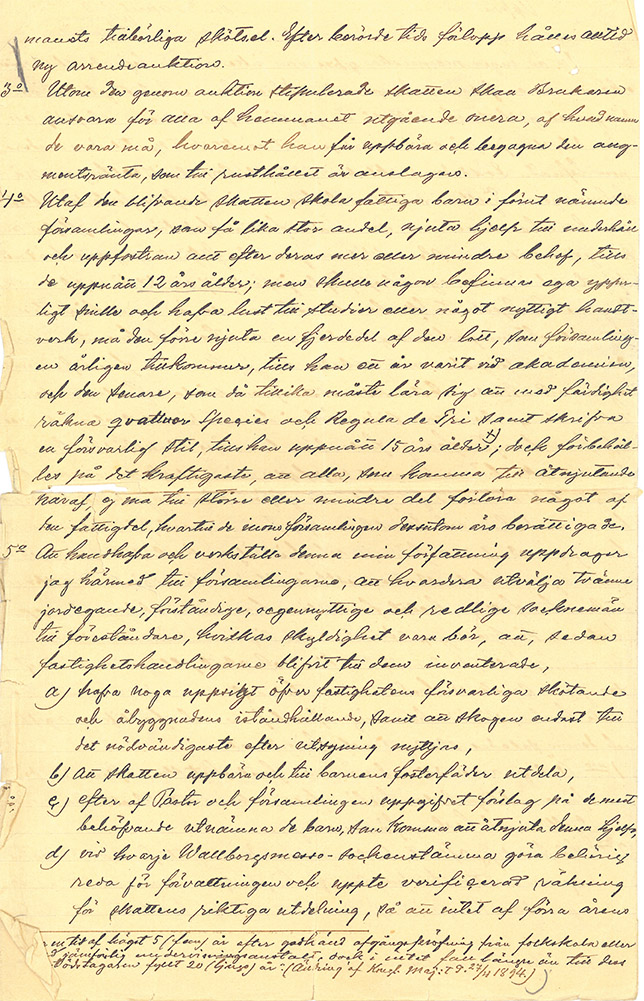 manets tillbörliga skötsel. Efter berörde tids förlopp hålles alltid
ny arrendeauktion.
3o Utom den genom auktion stipulerade skatten skall Brukaren
ansvara för alla af hemmanet utgående onera, af hvad namn
de vara må, hvaremot han får uppbära och begagna den aug-
mentsränta, som till rusthållet är anslagen.
4o Utaf den blifvande skatten skola fattiga barn i förut nämnde
församlingar, som få lika stor andel, njuta hjelp till underhåll
och uppfostran allt efter deras mer eller mindre behof, tills
de uppnått 12 års ålder; men skulle någon befinnas ega ypper-
ligt snille och hafva lust till studier eller något nyttigt handt-
verk, må den förre njuta en fjerdedel af den lott, som församling-
en årligen tillkommer, tills han ett år varit vid akademien,
och den senare, som då tillika måste lära sig att med färdighet
räkna quattuor Species och Regula de Tri samt skrifva
en försvarlig stil, tills han uppnått 15 års ålder +); dock förbehål-
les på det kraftigaste, att alla, som komma till åtnjutande
häraf, ej må till större eller mindre del förlora något af
den fattigdel, hvartill de inom församlingen dessutom äro berättigade.
5o Att handhafva och verkställa denna min författning uppdrager
jag härmed till församlingarne, att hvardera utvälja tvänne
jordegande, förståndige, oegennyttige och redlige sockenemän
till föreståndare, hvilkas skyldighet vara bör, att, sedan
fastighetshandlingarne blifvit till dem inventerade,
a) hafva noga uppsigt öfver fastighetens försvarliga skötande
och åbyggnadens iståndhållande, samt att skogen endast till
det nödvändigaste efter utsyning nyttjas,
b) Att skatten uppbära och till barnens fosterfäder utdela,
c) efter af Pastor och församlingen uppgifvet förslag på de mest
behöfvande utnämna de barn, som komma att åtnjuta denna hjelp,
d) vid hvarje Wallborgsmesso-sockenstämma göra behörig
reda för förvaltningen och uppte verifierad räkning
för skattens riktiga utdelning, så att intet af förra årens
en tid af högst 5 (fem) år efter godkänd afgångspröfning från folkskola eller
jämförlig undervisningsanstalt, dock i intet fall längre än till dess
understödstagaren fyllt 20 (tjugo) år. (Ändring af Kongl. Maj:t d. 27/4 1894.)